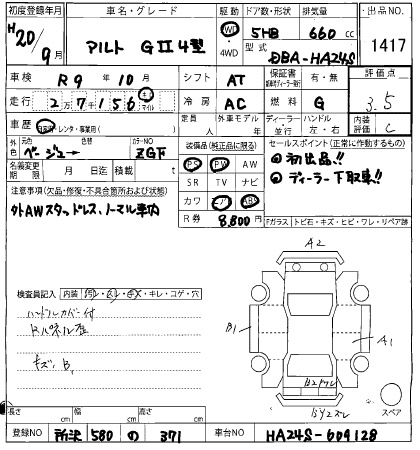 初度登録年月 車名・グレード 駆動 ドア数・形状 排気量 出品NO
H20/9月 アルト GⅡ4型 2WD ・4WD 5HB 660cc 1417
型式 DBA-HA24S
車検 R9年10月 シフト AT 保証書 有・無 評価点
走行 27156 キロ マイル 冷房 AC 燃料 G 3.5
車歴 自家用・レンタ・事業用( ) 定員 人 外車モデル 年 ディーラー・並行 ハンドル 左・右 内装評価 C
外色 元色 ベージュ 色替 カラーNO ZGF 装備品(純正品に限る) セールスポイント(正常に作動するもの)
名義変更期限 月 日迄 積載 t PS PW AW ①初出品!!
注意事項(欠品・修復・不具合箇所および状態) SR TV ナビ ②ディーラー下取車!!
外AWスタッドレス、ノーマル車内 カワ エアB ABS
R券 8,800円 Fガラス トビ石・キズ・ヒビ・ワレ・リペア跡
検査員記入 内装 汚レ・スレ・キズ・キレ・コゲ・穴
ハンドルカバー付
キズ、B1
A2
B1
A1
スペア
長さ cm 幅 cm 高さ cm
登録NO 所沢 580 の 371 車台NO HA24S-609128